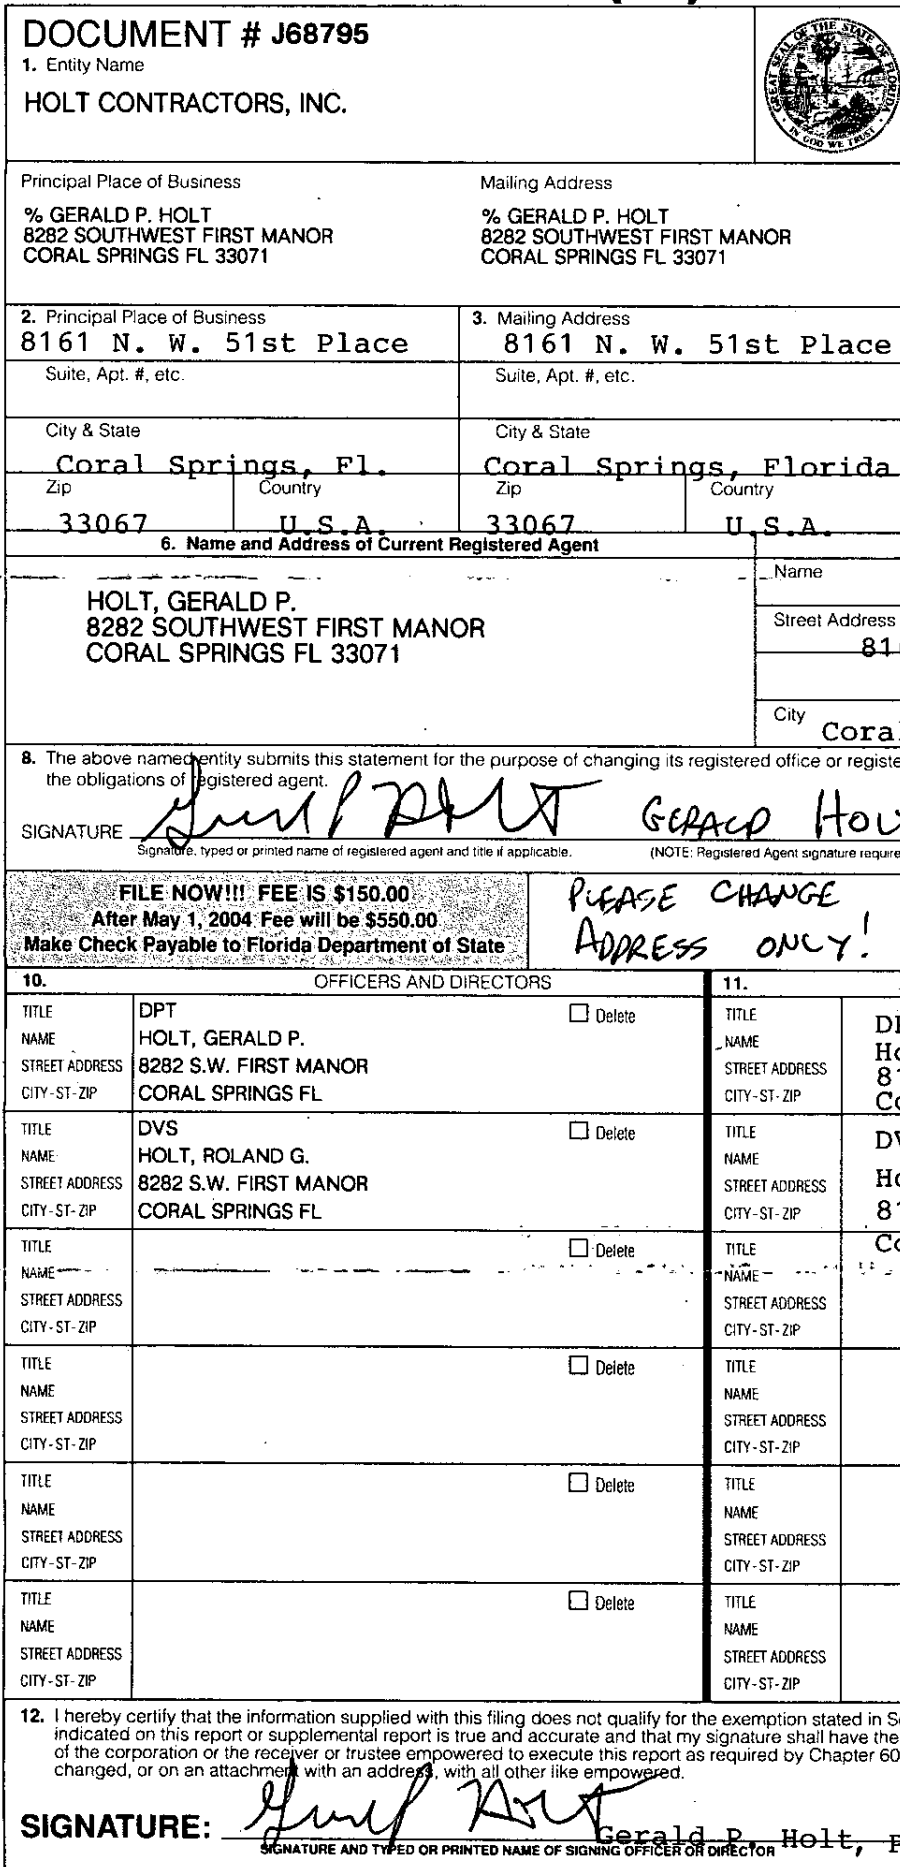 DOCUMENT # J68795
1. Entity Name
HOLT CONTRACTORS, INC.
GREAT SEAL OF THE STATE OF FLORIDA
IN GOD WE TRUST
Principal Place of Business
% GERALD P. HOLT
8282 SOUTHWEST FIRST MANOR
CORAL SPRINGS FL 33071
Mailing Address
% GERALD P. HOLT
8282 SOUTHWEST FIRST MANOR
CORAL SPRINGS FL 33071
2. Principal Place of Business
8161 N. W. 51st Place
Suite, Apt. #, etc.
City & State
Coral Springs, Fl.
Zip Country
33067 U.S.A.
3. Mailing Address
8161 N. W. 51st Place
Suite, Apt. #, etc.
City & State
Coral Springs, Florida
Zip Country
33067 U.S.A.
6. Name and Address of Current Registered Agent
HOLT, GERALD P.
8282 SOUTHWEST FIRST MANOR
CORAL SPRINGS FL 33071
Name
Street Address
81
City
Coral
8. The above named entity submits this statement for the purpose of changing its registered office or registe
the obligations of registered agent.
SIGNATURE Gerald P Holt GERALD HOL
Signature, typed or printed name of registered agent and title if applicable. (NOTE: Registered Agent signature require
FILE NOW!!! FEE IS $150.00
After May 1, 2004 Fee will be $550.00
Make Check Payable to Florida Department of State
PLEASE CHANGE
ADDRESS ONLY!
10. OFFICERS AND DIRECTORS
TITLE DPT Delete
NAME HOLT, GERALD P.
STREET ADDRESS 8282 S.W. FIRST MANOR
CITY-ST-ZIP CORAL SPRINGS FL
TITLE DVS Delete
NAME HOLT, ROLAND G.
STREET ADDRESS 8282 S.W. FIRST MANOR
CITY-ST-ZIP CORAL SPRINGS FL
TITLE Delete
NAME
STREET ADDRESS
CITY-ST-ZIP
TITLE Delete
NAME
STREET ADDRESS
CITY-ST-ZIP
TITLE Delete
NAME
STREET ADDRESS
CITY-ST-ZIP
TITLE Delete
NAME
STREET ADDRESS
CITY-ST-ZIP
11.
TITLE D
NAME Ho
STREET ADDRESS 81
CITY-ST-ZIP Co
TITLE DV
NAME
STREET ADDRESS Ho
CITY-ST-ZIP 81
TITLE Co
NAME
STREET ADDRESS
CITY-ST-ZIP
TITLE
NAME
STREET ADDRESS
CITY-ST-ZIP
TITLE
NAME
STREET ADDRESS
CITY-ST-ZIP
TITLE
NAME
STREET ADDRESS
CITY-ST-ZIP
12. I hereby certify that the information supplied with this filing does not qualify for the exemption stated in Se
indicated on this report or supplemental report is true and accurate and that my signature shall have the
of the corporation or the receiver or trustee empowered to execute this report as required by Chapter 60
changed, or on an attachment with an address, with all other like empowered.
SIGNATURE: Gerald P Holt Gerald P. Holt, P
SIGNATURE AND TYPED OR PRINTED NAME OF SIGNING OFFICER OR DIRECTOR